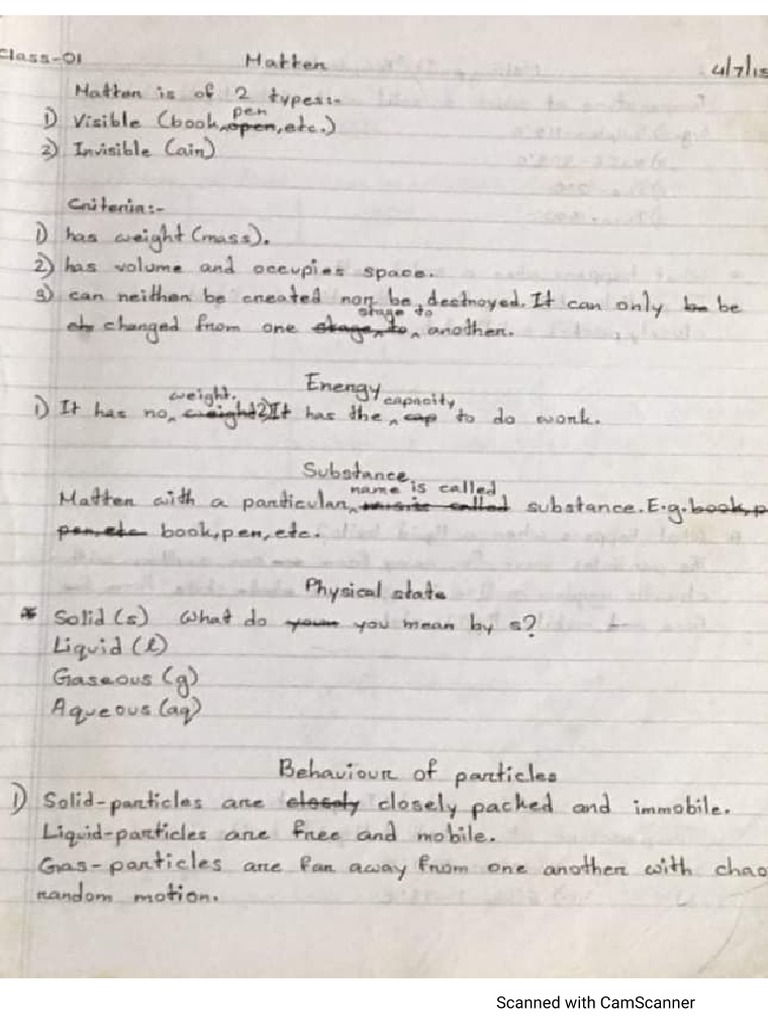 Class-01 Matter 4/7/15
Matter is of 2 types:-
1) Visible (book, pen, etc.)
2) Invisible (air)
Criteria:-
1) has weight (mass).
2) has volume and occupies space.
3) can neither be created nor be destroyed. It can only be
changed from one stage to another.
Energy
1) It has no weight. 2) It has the capacity to do work.
Substance
Matter with a particular name is called substance. E.g.
book, pen, etc.
Physical state
* Solid (s) What do you mean by s?
Liquid (l)
Gaseous (g)
Aqueous (aq)
Behaviour of particles
1) Solid-particles are closely packed and immobile.
Liquid-particles are free and mobile.
Gas-particles are far away from one another with chao
random motion.
Scanned with CamScanner